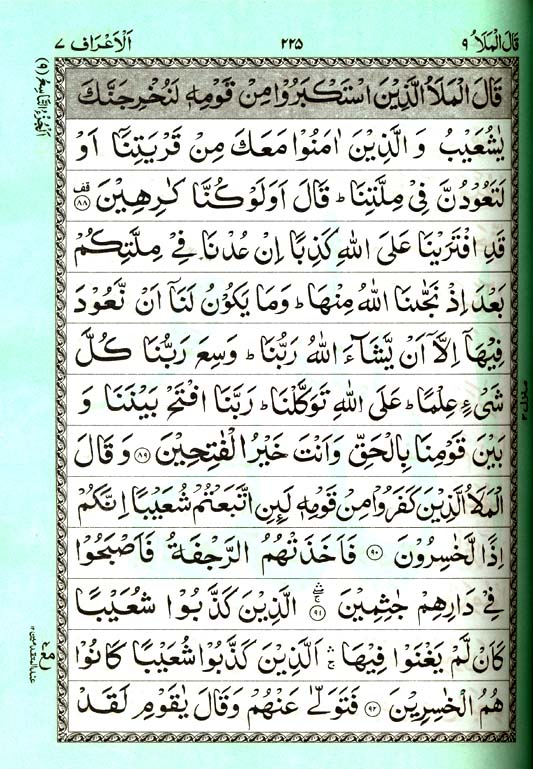 قَالَ الْمَلَاُ ٩
٢٢٥
اَلْاَعْرَاف ٧
اَلْجُزْءُ التَّاسِعُ (٩)
قَالَ الْمَلَاُ الَّذِيْنَ اسْتَكْبَرُوْا مِنْ قَوْمِهٖ لَنُخْرِجَنَّكَ
يٰشُعَيْبُ وَ الَّذِيْنَ اٰمَنُوْا مَعَكَ مِنْ قَرْيَتِنَاۤ اَوْ
لَتَعُوْدُنَّ فِيْ مِلَّتِنَا ؕ قَالَ اَوَلَوْ كُنَّا كٰرِهِيْنَ ۟ قف ٨٨
قَدِ افْتَرَيْنَا عَلَى اللّٰهِ كَذِبًا اِنْ عُدْنَا فِيْ مِلَّتِكُمْ
بَعْدَ اِذْ نَجّٰىنَا اللّٰهُ مِنْهَا ؕ وَمَا يَكُوْنُ لَنَاۤ اَنْ نَّعُوْدَ
فِيْهَاۤ اِلَّاۤ اَنْ يَّشَآءَ اللّٰهُ رَبُّنَا ؕ وَسِعَ رَبُّنَا كُلَّ
شَيْءٍ عِلْمًا ؕ عَلَى اللّٰهِ تَوَكَّلْنَا ؕ رَبَّنَا افْتَحْ بَيْنَنَا وَ
بَيْنَ قَوْمِنَا بِالْحَقِّ وَاَنْتَ خَيْرُ الْفٰتِحِيْنَ ٨٩ وَ قَالَ
الْمَلَاُ الَّذِيْنَ كَفَرُوْا مِنْ قَوْمِهٖ لَىِٕنِ اتَّبَعْتُمْ شُعَيْبًا اِنَّكُمْ
اِذًا لَّخٰسِرُوْنَ ٩٠ فَاَخَذَتْهُمُ الرَّجْفَةُ فَاَصْبَحُوْا
فِيْ دَارِهِمْ جٰثِمِيْنَ ٩١ الَّذِيْنَ كَذَّبُوْا شُعَيْبًا
كَاَنْ لَّمْ يَغْنَوْا فِيْهَا ۚ اَلَّذِيْنَ كَذَّبُوْا شُعَيْبًا كَانُوْا
هُمُ الْخٰسِرِيْنَ ٩٢ فَتَوَلّٰى عَنْهُمْ وَقَالَ يٰقَوْمِ لَقَدْ